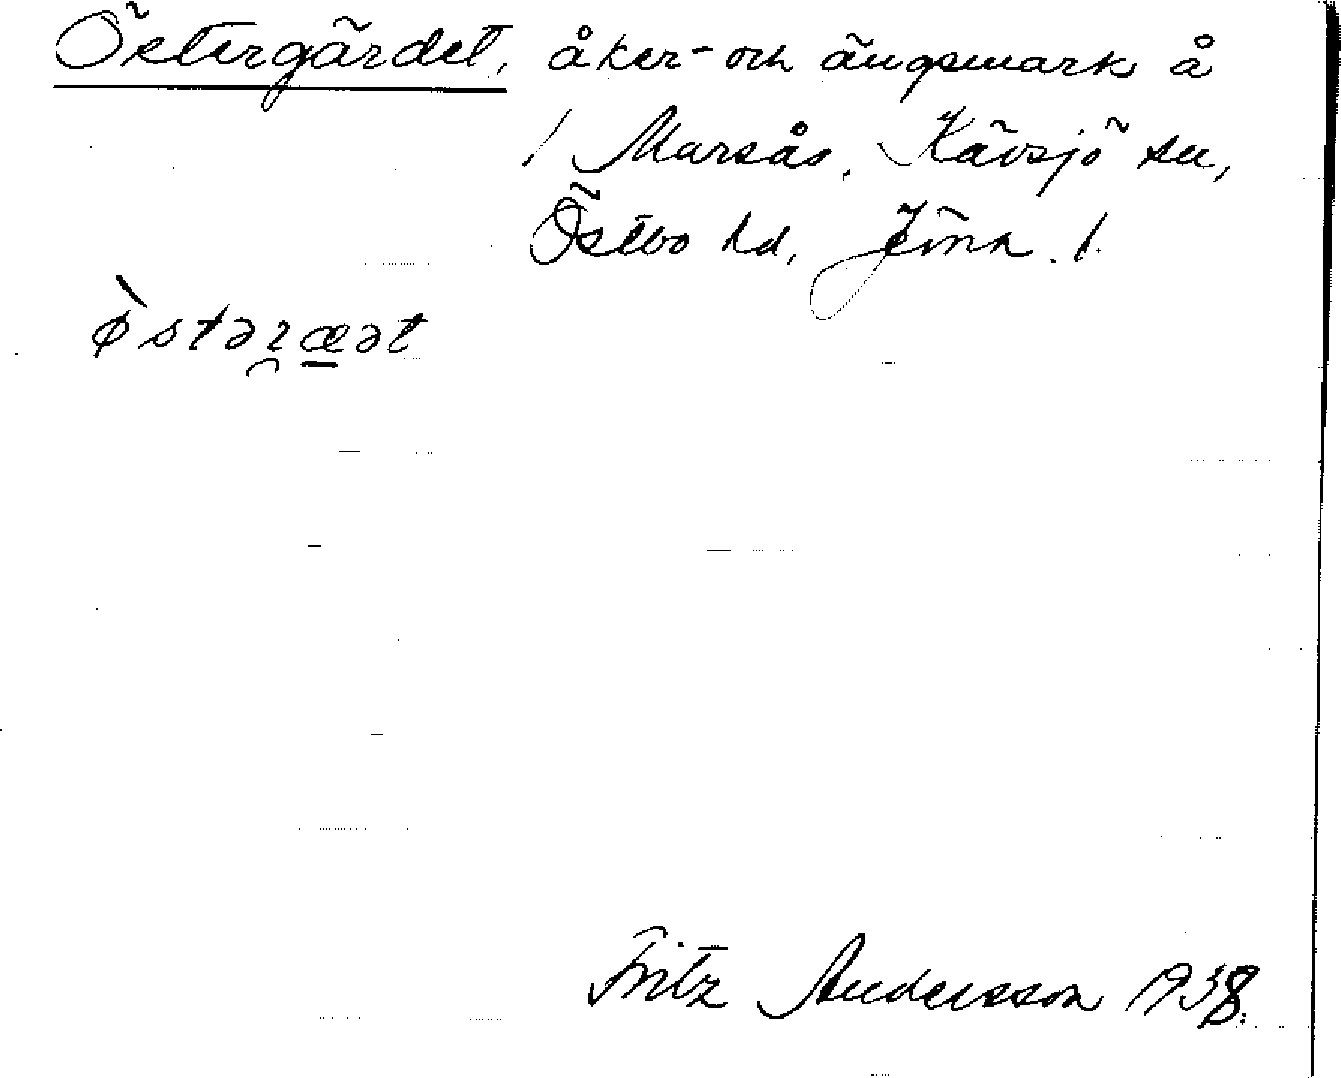 Östergärdet, åker- och ängsmark å
/ Marsås, Kävsjö sn,
Östbo hd, Jönk. l.
ø̀stəræət
Fritz Andersson 1938.